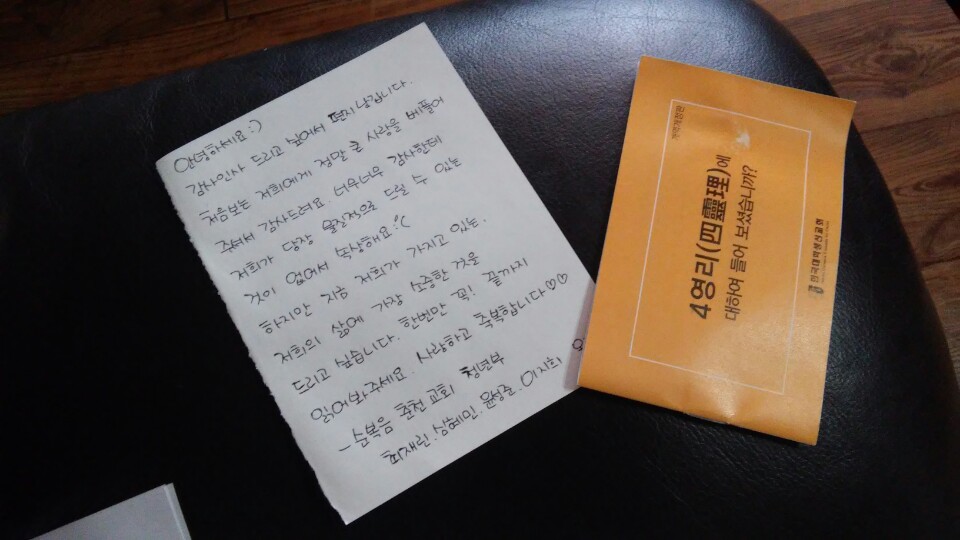 안녕하세요 :)
감사인사 드리고 싶어서 편지 남깁니다.
처음보는 저희에게 정말 큰 사랑을 베풀어
주셔서 감사드려요. 너무너무 감사한데
저희가 당장 물질적으로 드릴 수 있는
것이 없어서 속상해요 :(
하지만 지금 저희가 가지고 있는.
저희의 삶에 가장 소중한 것을
드리고 싶습니다. 한번만 꼭! 끝까지
읽어봐주세요. 사랑하고 축복합니다♡♡
- 순복음 춘천 교회 청년부
최재린. 상혜민. 윤성준. 이지희
4영리(四靈理)에
대하여 들어 보셨습니까?
한국대학생선교회